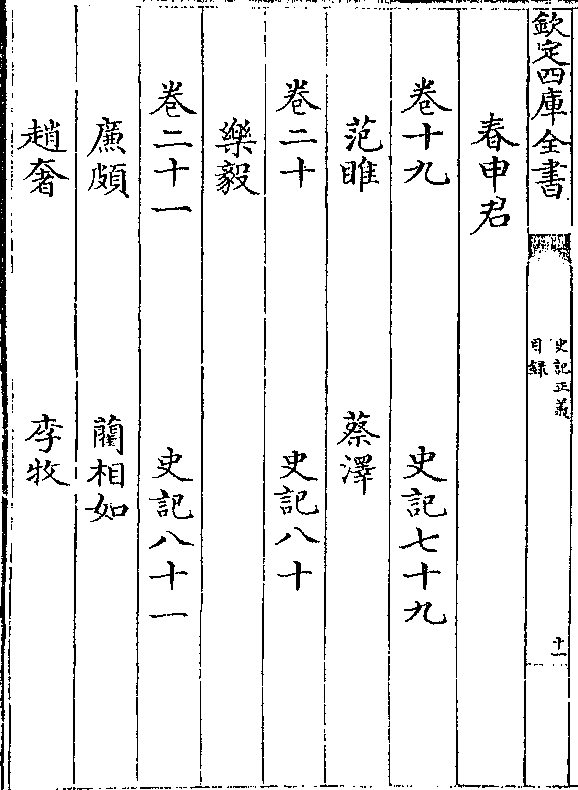 欽定四庫全書
史記正義
目錄
十一
春申君
卷十九 史記七十九
范睢 蔡澤
卷二十 史記八十
樂毅
卷二十一 史記八十一
廉頗 藺相如
趙奢 李牧